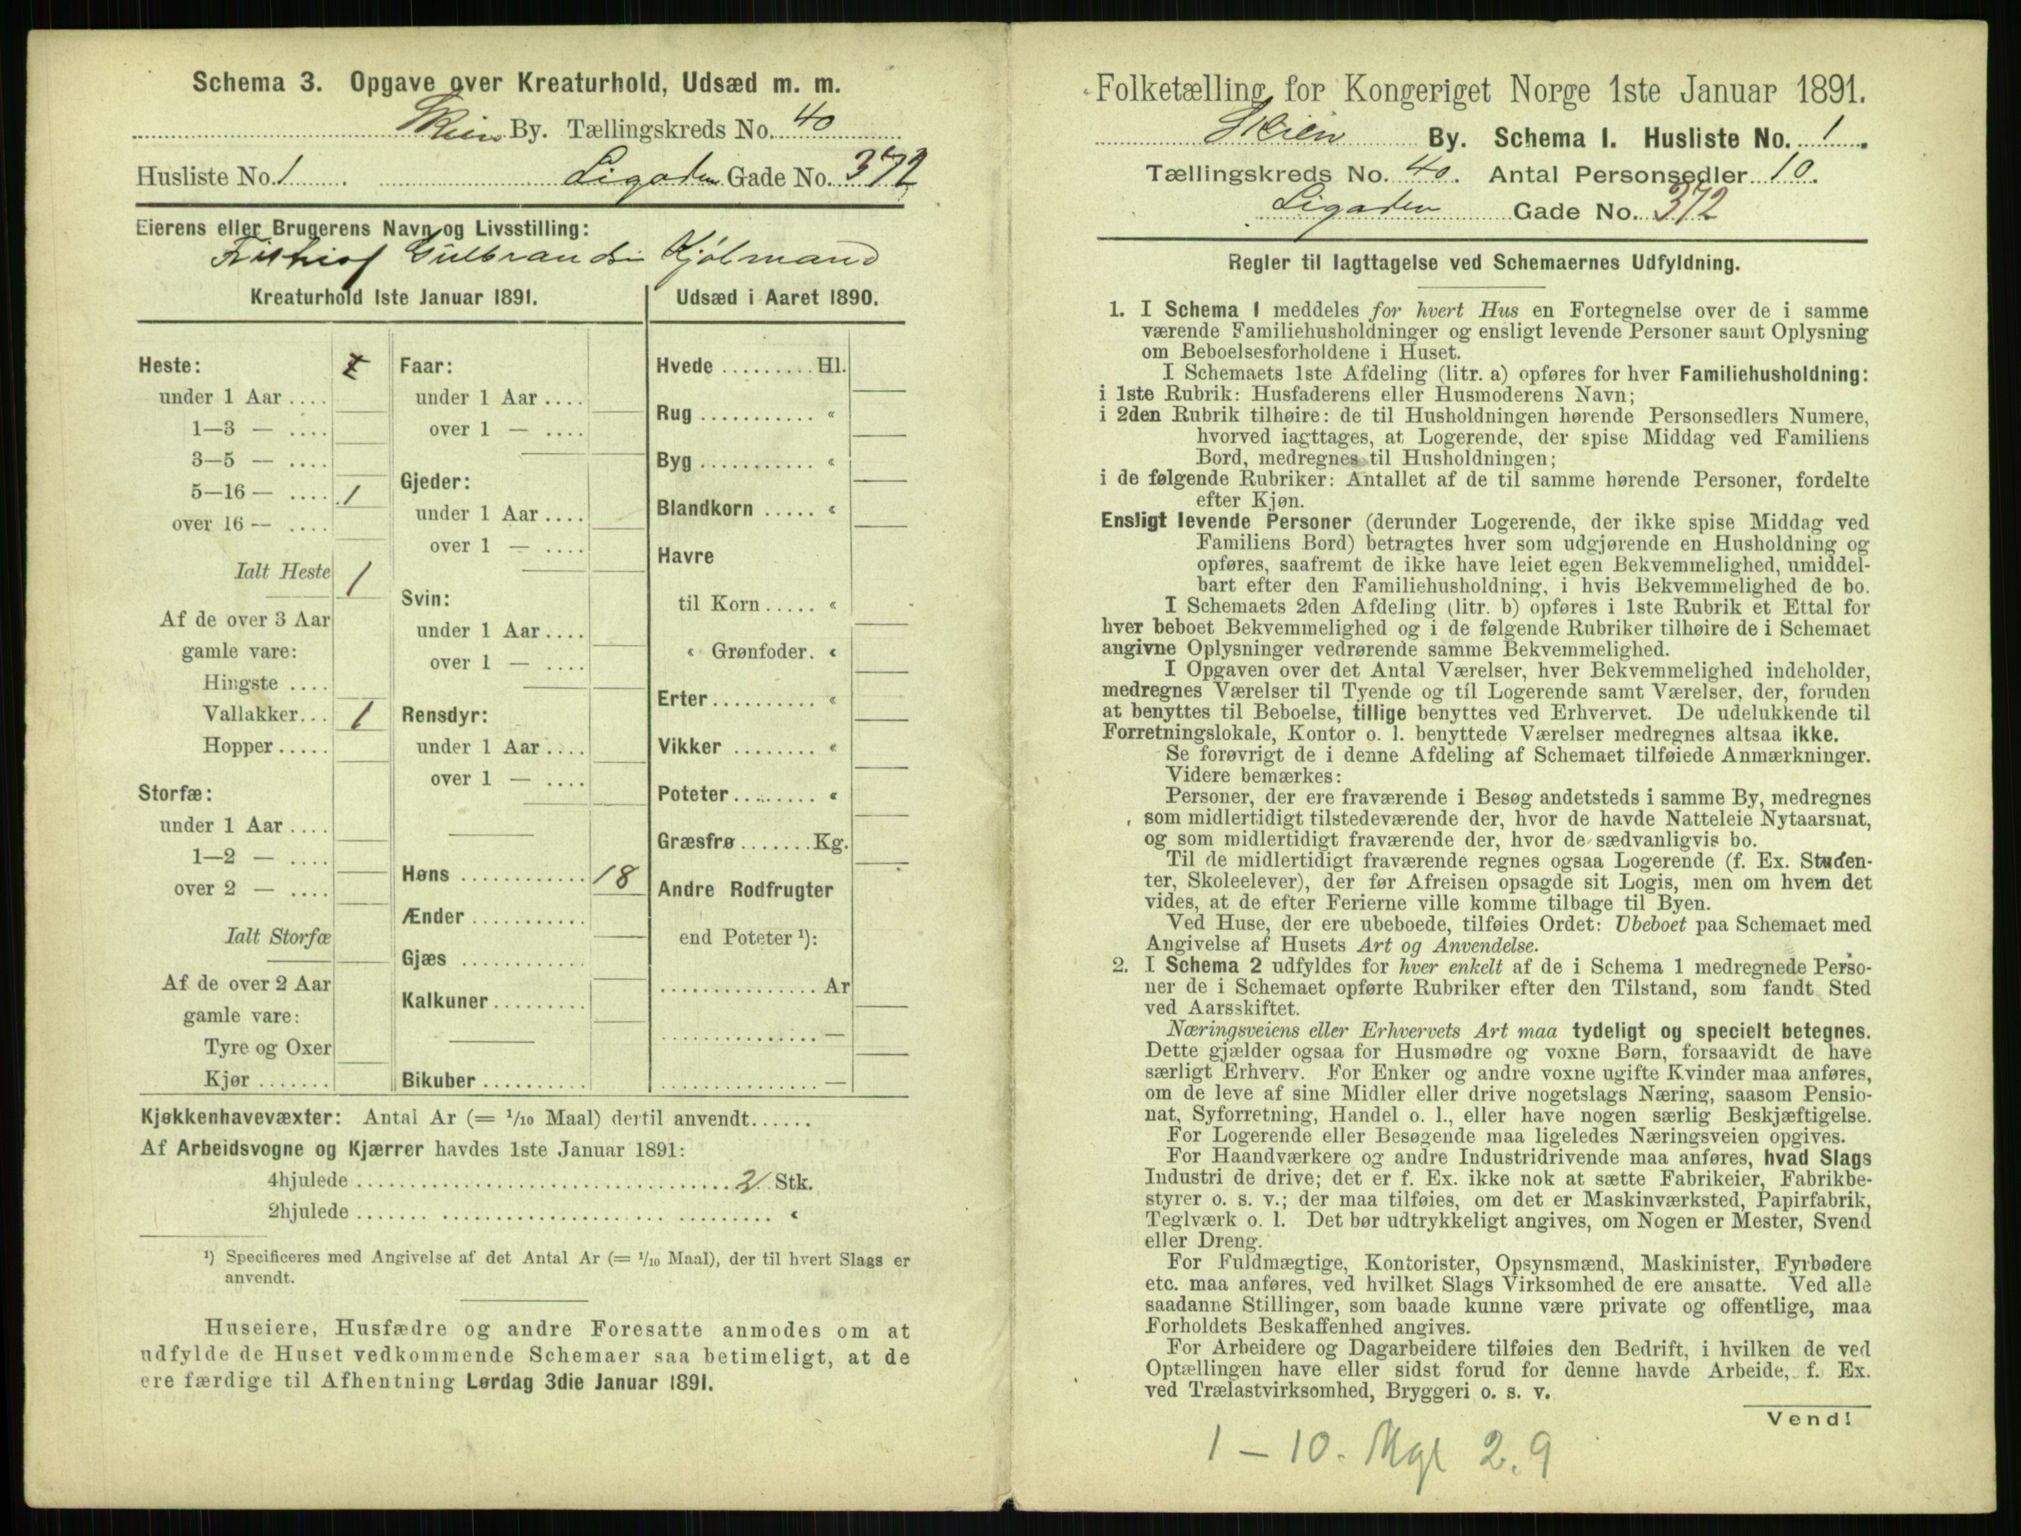 Schema 3. Opgave over Kreaturhold, Udsæd m. m.
Skien By. Tællingskreds No. 40
Husliste No. 1 Ligaden Gade No. 372
Eierens eller Brugerens Navn og Livsstilling:
Gulbrandsen Kjølmand
Kreaturhold 1ste Januar 1891. Udsæd i Aaret 1890.
Heste:
under 1 Aar ....
1—3 — ....
3—5 — ....
5—16 — .... 1
over 16 — ....
Ialt Heste 1
Af de over 3 Aar
gamle vare:
Hingste ....
Vallakker... 1
Hopper.....
Storfæ:
under 1 Aar ....
1—2 — ....
over 2 — ....
Ialt Storfæ
Af de over 2 Aar
gamle vare:
Tyre og Oxer
Kjør.......
Faar:
under 1 Aar ....
over 1 — ....
Gjeder:
under 1 Aar ....
over 1 — ....
Svin:
under 1 Aar ....
over 1 — ....
Rensdyr:
under 1 Aar ....
over 1 — ....
Høns ............ 18
Ænder ..........
Gjæs ...........
Kalkuner.........
Bikuber..........
Hvede ......... Hl.
Rug ........... «
Byg ........... «
Blandkorn ..... «
Havre
til Korn ..... «
« Grønfoder. «
Erter.......... «
Vikker ........ «
Poteter........ «
Græsfrø ....... Kg.
Andre Rodfrugter
end Poteter ¹):
............... Ar
............... —
............... —
Kjøkkenhavevæxter: Antal Ar (= 1/10 Maal) dertil anvendt......
Af Arbeidsvogne og Kjærrer havdes 1ste Januar 1891:
4hjulede .................................. 2 Stk.
2hjulede .................................. «
¹) Specificeres med Angivelse af det Antal Ar (= 1/10 Maal), der til hvert Slags er
anvendt.
Huseiere, Husfædre og andre Foresatte anmodes om at
udfylde de Huset vedkommende Schemaer saa betimeligt, at de
ere færdige til Afhentning Lørdag 3die Januar 1891.
Folketælling for Kongeriget Norge 1ste Januar 1891.
Skien By. Schema 1. Husliste No. 1.
Tællingskreds No. 40. Antal Personsedler 10.
Ligaden Gade No. 372
Regler til Iagttagelse ved Schemaernes Udfyldning.
1. I Schema 1 meddeles for hvert Hus en Fortegnelse over de i samme
værende Familiehusholdninger og ensligt levende Personer samt Oplysning
om Beboelsesforholdene i Huset.
I Schemaets 1ste Afdeling (litr. a) opføres for hver Familiehusholdning:
i 1ste Rubrik: Husfaderens eller Husmoderens Navn;
i 2den Rubrik tilhøire: de til Husholdningen hørende Personsedlers Numere,
hvorved iagttages, at Logerende, der spise Middag ved Familiens
Bord, medregnes til Husholdningen;
i de følgende Rubriker: Antallet af de til samme hørende Personer, fordelte
efter Kjøn.
Ensligt levende Personer (derunder Logerende, der ikke spise Middag ved
Familiens Bord) betragtes hver som udgjørende en Husholdning og
opføres, saafremt de ikke have leiet egen Bekvemmelighed, umiddel-
bart efter den Familiehusholdning, i hvis Bekvemmelighed de bo.
I Schemaets 2den Afdeling (litr. b) opføres i 1ste Rubrik et Ettal for
hver beboet Bekvemmelighed og i de følgende Rubriker tilhøire de i Schemaet
angivne Oplysninger vedrørende samme Bekvemmelighed.
I Opgaven over det Antal Værelser, hver Bekvemmelighed indeholder,
medregnes Værelser til Tyende og til Logerende samt Værelser, der, foruden
at benyttes til Beboelse, tillige benyttes ved Erhvervet. De udelukkende til
Forretningslokale, Kontor o. l. benyttede Værelser medregnes altsaa ikke.
Se forøvrigt de i denne Afdeling af Schemaet tilføiede Anmærkninger.
Videre bemærkes:
Personer, der ere fraværende i Besøg andetsteds i samme By, medregnes
som midlertidigt tilstedeværende der, hvor de havde Natteleie Nytaarsnat,
og som midlertidigt fraværende der, hvor de sædvanligvis bo.
Til de midlertidigt fraværende regnes ogsaa Logerende (f. Ex. Studen-
ter, Skoleelever), der før Afreisen opsagde sit Logis, men om hvem det
vides, at de efter Ferierne ville komme tilbage til Byen.
Ved Huse, der ere ubeboede, tilføies Ordet: Ubeboet paa Schemaet med
Angivelse af Husets Art og Anvendelse.
2. I Schema 2 udfyldes for hver enkelt af de i Schema 1 medregnede Perso-
ner de i Schemaet opførte Rubriker efter den Tilstand, som fandt Sted
ved Aarsskiftet.
Næringsveiens eller Erhvervets Art maa tydeligt og specielt betegnes.
Dette gjælder ogsaa for Husmødre og voxne Børn, forsaavidt de have
særligt Erhverv. For Enker og andre voxne ugifte Kvinder maa anføres,
om de leve af sine Midler eller drive nogetslags Næring, saasom Pensio-
nat, Syforretning, Handel o. l., eller have nogen særlig Beskjæftigelse.
For Logerende eller Besøgende maa ligeledes Næringsveien opgives.
For Haandværkere og andre Industridrivende maa anføres, hvad Slags
Industri de drive; det er f. Ex. ikke nok at sætte Fabrikeier, Fabrikbe-
styrer o. s. v.; der maa tilføies, om det er Maskinværksted, Papirfabrik,
Teglværk o. l. Det bør udtrykkeligt angives, om Nogen er Mester, Svend
eller Dreng.
For Fuldmægtige, Kontorister, Opsynsmænd, Maskinister, Fyrbødere
etc. maa anføres, ved hvilket Slags Virksomhed de ere ansatte. Ved alle
saadanne Stillinger, som baade kunne være private og offentlige, maa
Forholdets Beskaffenhed angives.
For Arbeidere og Dagarbeidere tilføies den Bedrift, i hvilken de ved
Optællingen have eller sidst forud for denne havde Arbeide, f. Ex.
ved Trælastvirksomhed, Bryggeri o. s. v.
Vend!
1 — 10. Mgl 2. 9